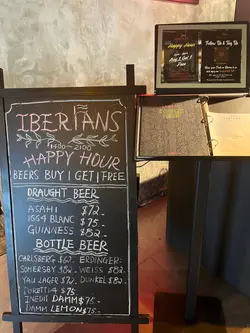 IBERIANS
1400-2100
HAPPY HOUR
BEERS BUY 1 GET 1 FREE
DRAUGHT BEER
ASAHI $72-
1664 BLANC $75-
GUINNESS $82-
BOTTLE BEER
CARLSBERG $62- ERDINGER:
SOMERSBY $82- WEISS $82-
YAU LAGER $72- DUNKEL $82-
PORETTI 4 $75
INEDIT DAMM $75-
DAMM LEMON $75-
Happy Hour
Buy 1 Get 1
Free
Follow Us & Tag Us